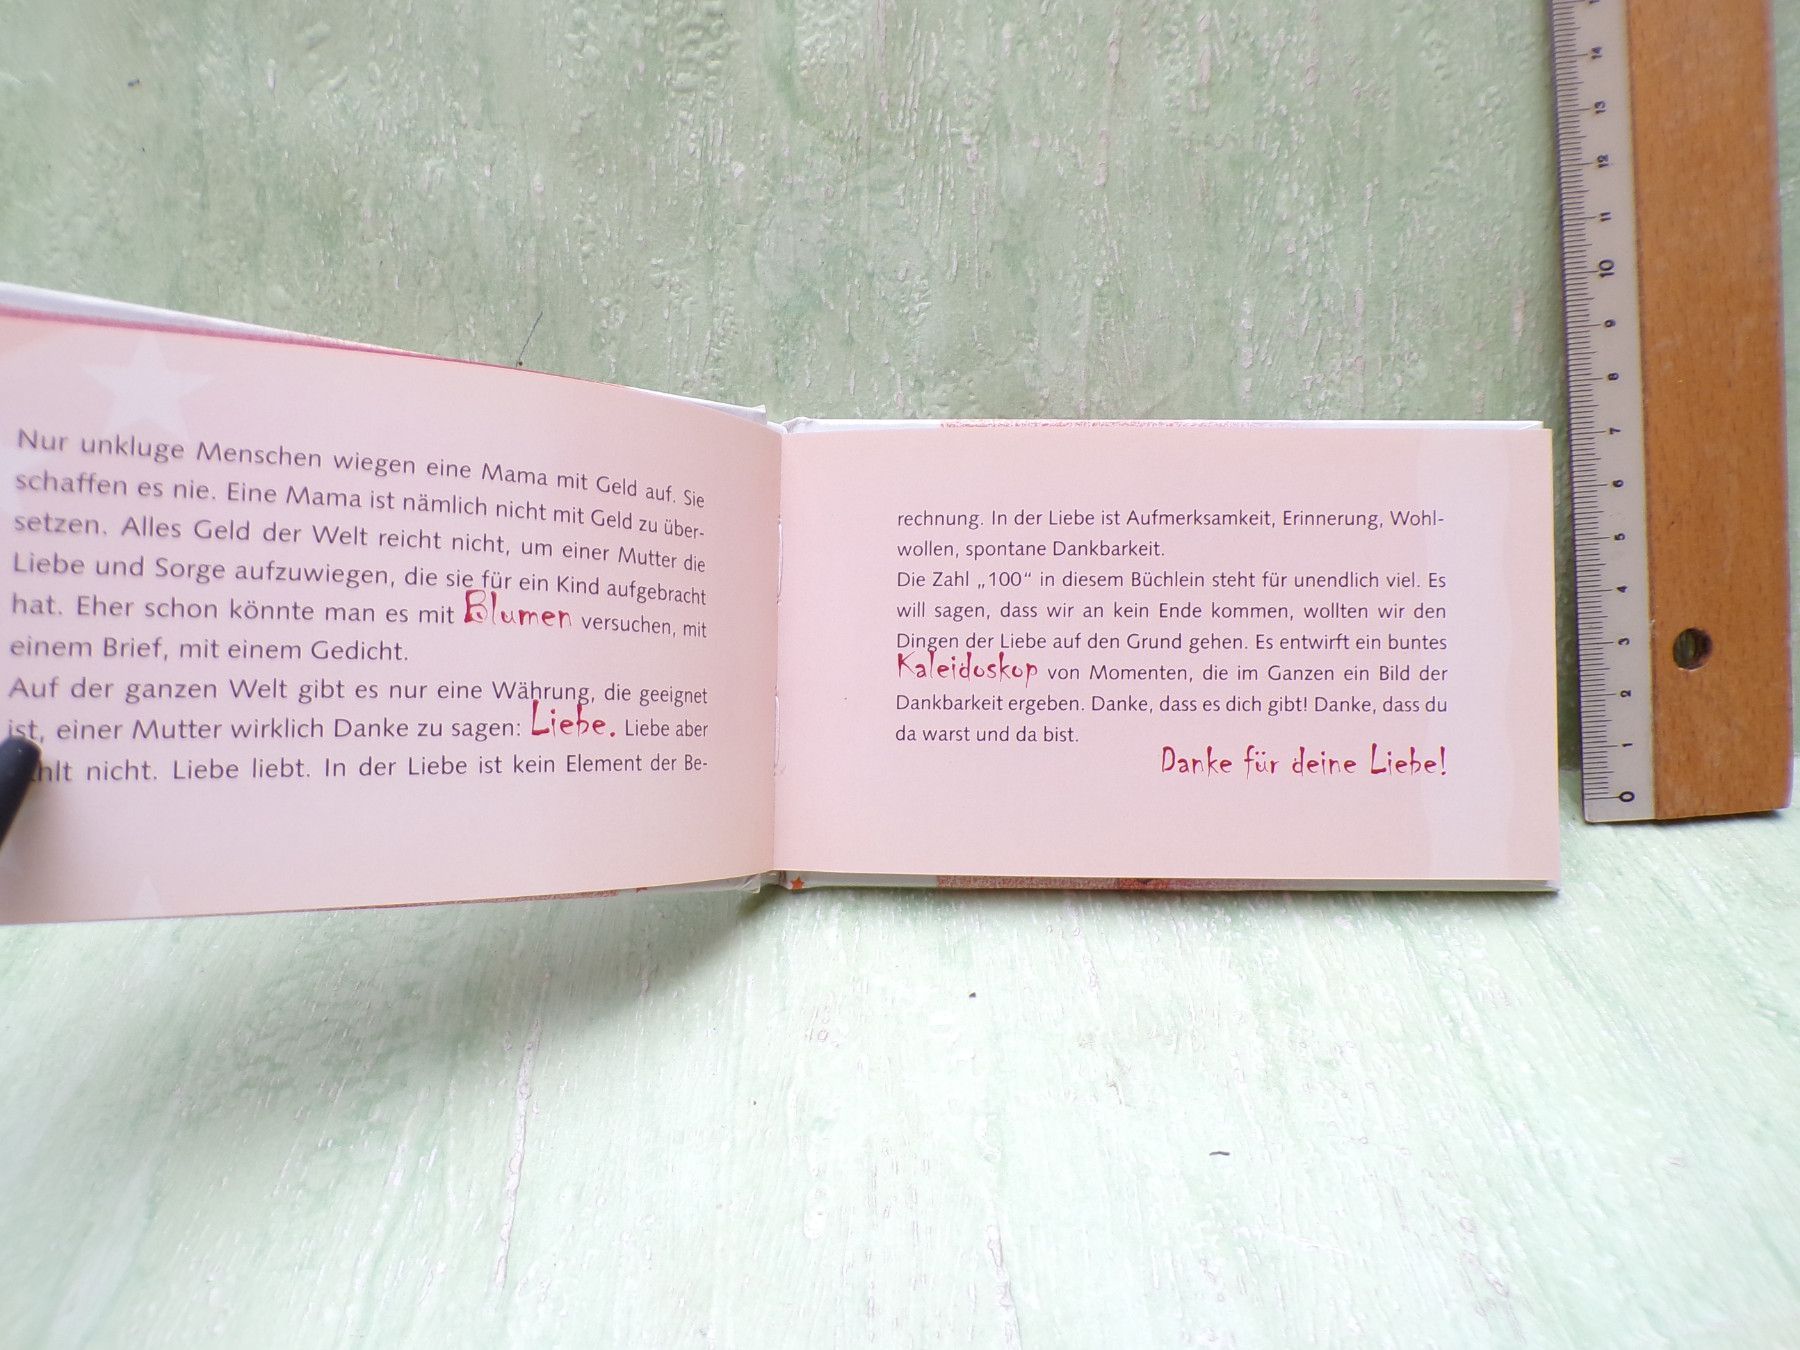 Nur unkluge Menschen wiegen eine Mama mit Geld auf. Sie
schaffen es nie. Eine Mama ist nämlich nicht mit Geld zu über-
setzen. Alles Geld der Welt reicht nicht, um einer Mutter die
Liebe und Sorge aufzuwiegen, die sie für ein Kind aufgebracht
hat. Eher schon könnte man es mit Blumen versuchen, mit
einem Brief, mit einem Gedicht.
Auf der ganzen Welt gibt es nur eine Währung, die geeignet
ist, einer Mutter wirklich Danke zu sagen: Liebe. Liebe aber
nicht. Liebe liebt. In der Liebe ist kein Element der Be-
rechnung. In der Liebe ist Aufmerksamkeit, Erinnerung, Wohl-
wollen, spontane Dankbarkeit.
Die Zahl „100“ in diesem Büchlein steht für unendlich viel. Es
will sagen, dass wir an kein Ende kommen, wollten wir den
Dingen der Liebe auf den Grund gehen. Es entwirft ein buntes
Kaleidoskop von Momenten, die im Ganzen ein Bild der
Dankbarkeit ergeben. Danke, dass es dich gibt! Danke, dass du
da warst und da bist.
Danke für deine Liebe!
14
13
12
11
10
9
8
7
6
5
4
3
2
1
0